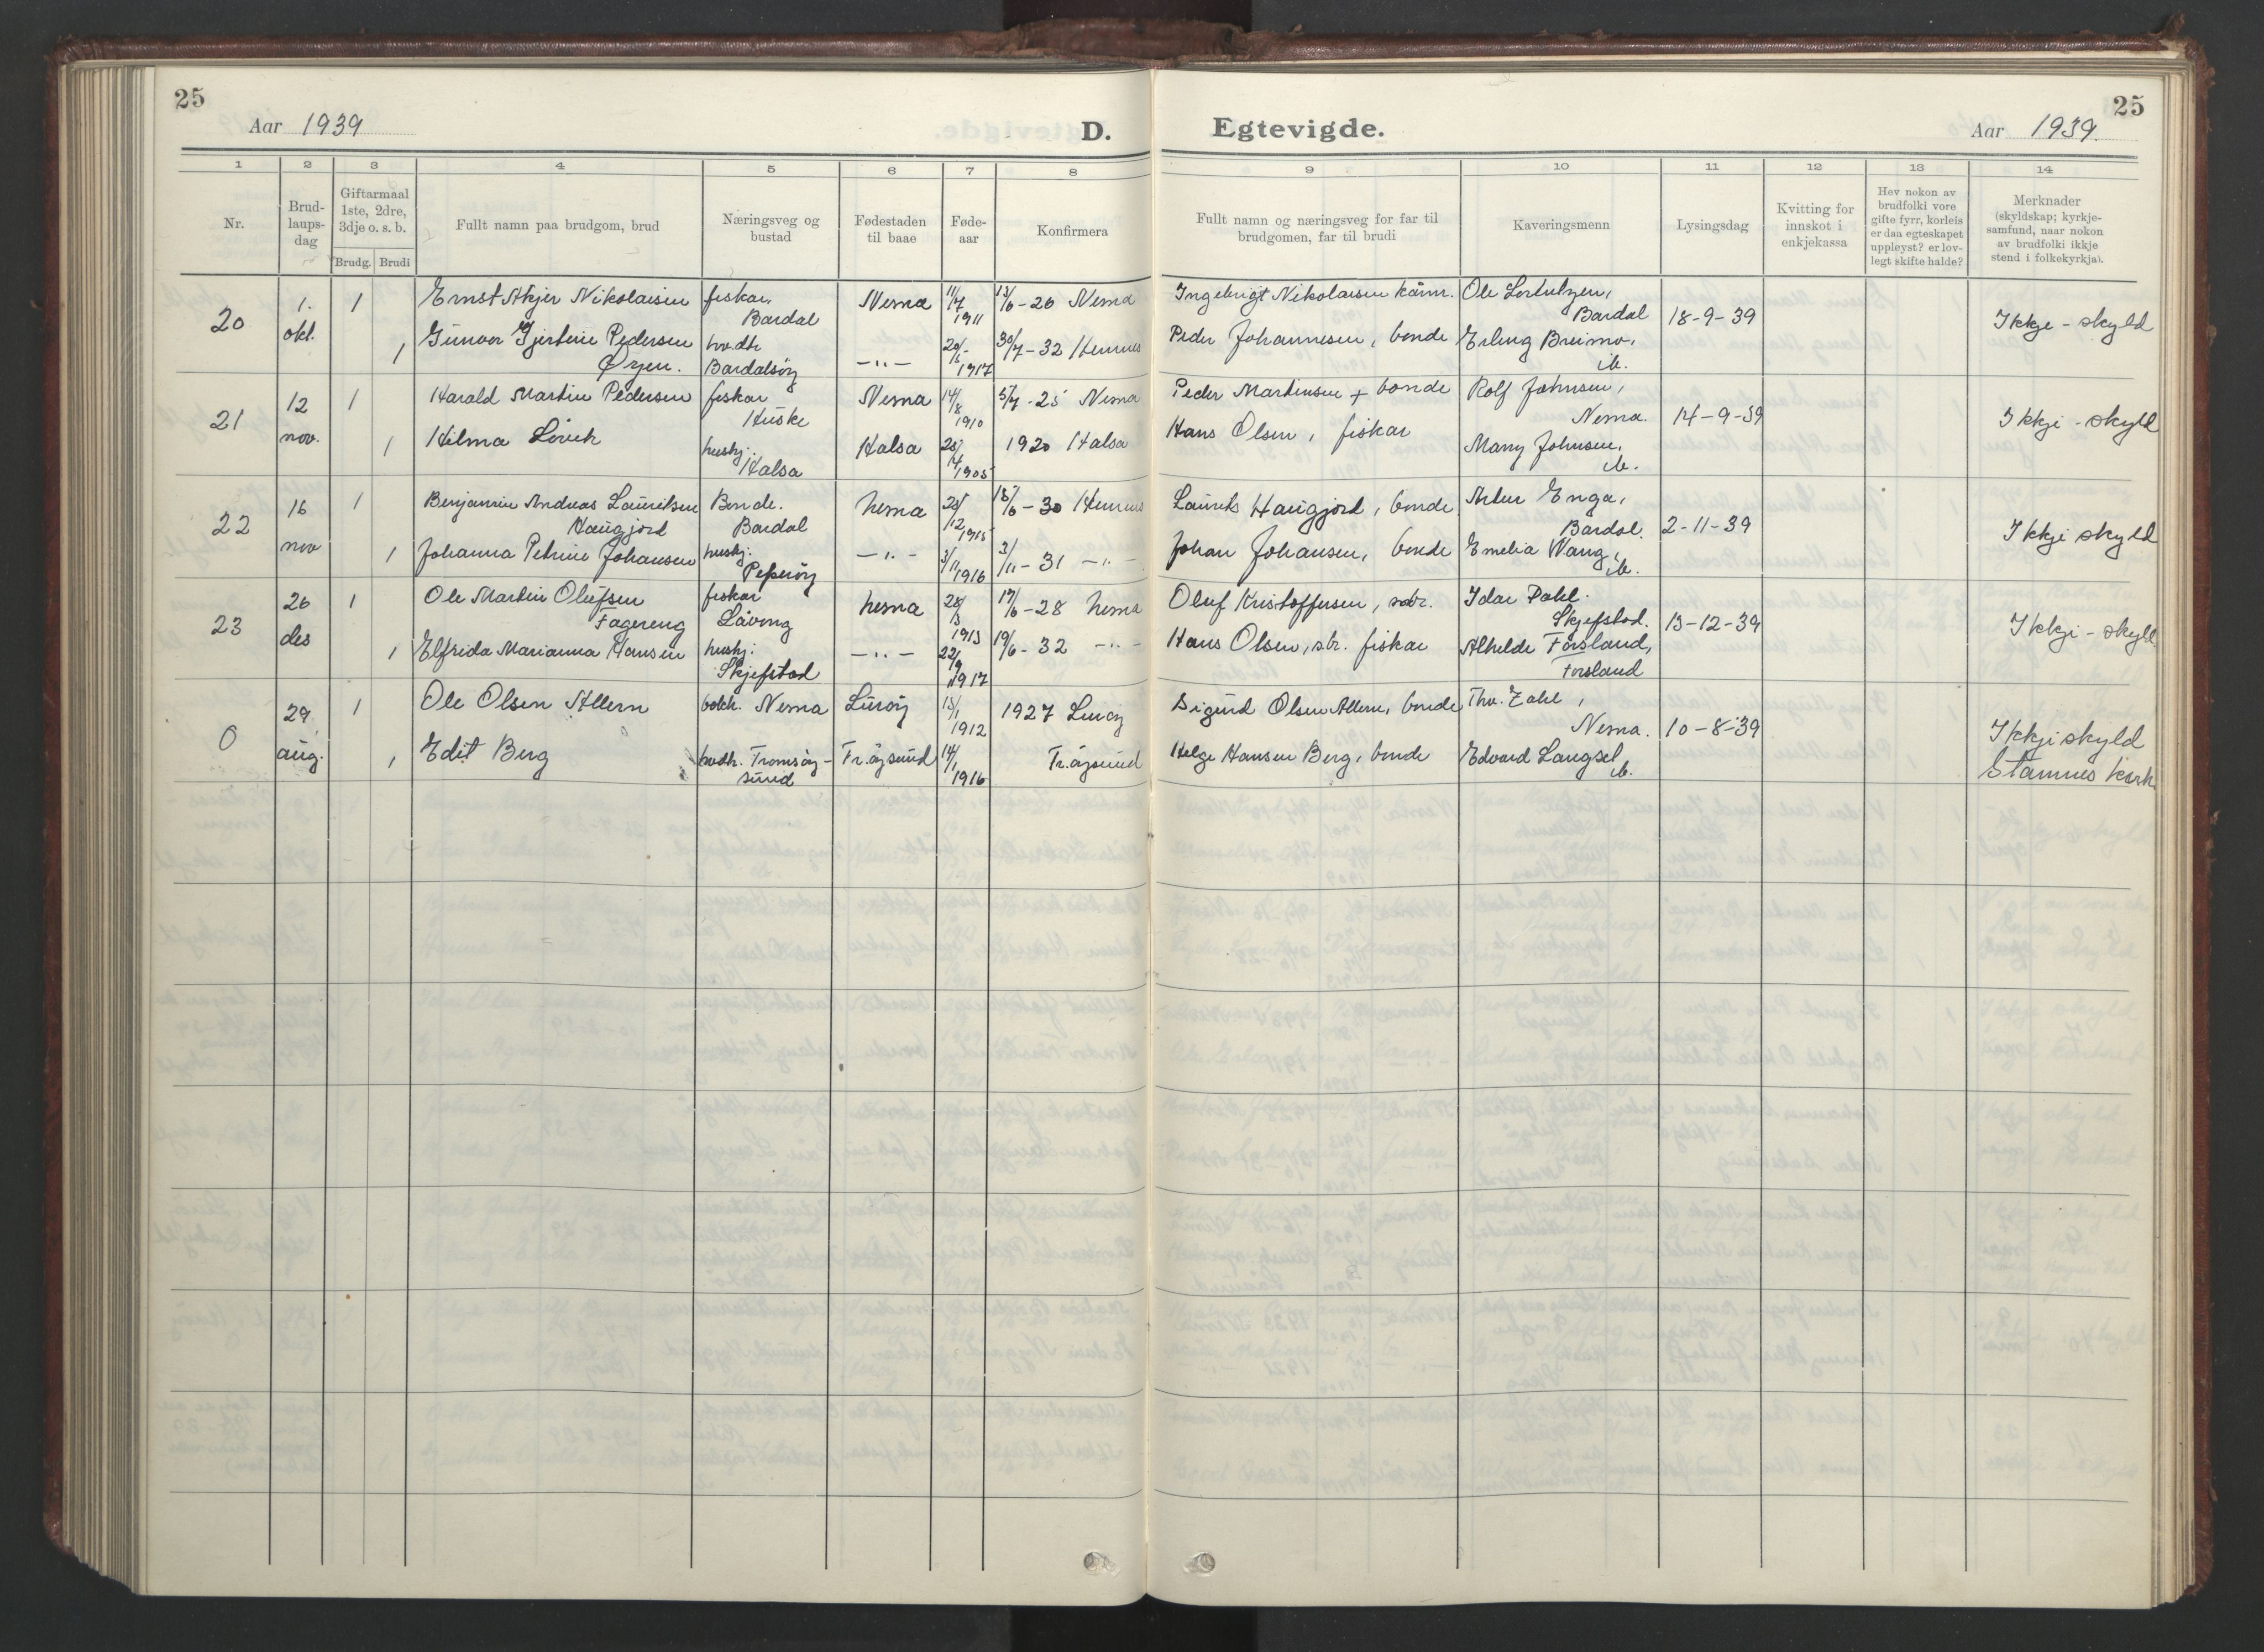 25
Aar 1939
D.
1 2 3 4 5 6 7 8
Nr.
Brud-
laups-
dag
Giftarmaal
1ste, 2dre,
3dje o. s. b.
Brudg. Brudi
Fullt namn paa brudgom, brud
Næringsveg og
bustad
Fødestaden
til baae
Føde-
aar
Konfirmera
20 1. okt. 1 Ernst Akjer Nikolaisen fiskar, Bardal Nesna 11/7 1911 13/6-26 Nesna
1 Gunvor Gjertine Pedersen Øyen. hv.dtr Bardalsöy -"- 20/5- 1917 30/7-32 Hemnes
21 12 nov. 1 Harald Martin Pedersen fiskar Huske Nesna 14/8 1910 5/7-25 Nesna
1 Hilma hushj. Halsa Halsa 1905 1920 Halsa
22 16 nov 1 Benjamin Andreas Lauritsen Haugjord Bonde. Bardal Nesna 28/12 1915 15/6-30 Hemnes
1 Johanna Petrine Johansen hushj. -"- 3/11 1916 2/11-31 -"-
23 26 des 1 Ole Martin Olufsen Fagereng fiskar Låvong Nesna 28/3 1913 17/6-28 Nesna
1 Elfrida Marianna Hansen hushj: Skjefstad -"- 22/9 1917 19/6-32 -"-
0 29 aug. 1 Ole Olsen Allern Nesna Luröy 15/1 1912 1927 Luröy
1 Edit Berg Tromsöy-
sund Tr.öysund 14/1 1916 Tr.öysund
25
Egtevigde.
Aar 1939.
9 10 11 12 13 14
Fullt namn og næringsveg for far til
brudgomen, far til brudi
Kaveringsmenn
Lysingsdag
Kvitting for
innskot i
enkjekassa
Hev nokon av
brudfolki vore
gifte fyrr, korleis
er daa egteskapet
uppløyst? er lov-
legt skifte halde?
Merknader
(skyldskap; kyrkje-
samfund, naar nokon
av brudfolki ikkje
stend i folkekyrkja).
Ingebrigt Nikolaisen kårm. Ole Lorentzen, Bardal 18-9-39 Ikkje - skyld
Peder Johannesen, bonde Erling Breimo, ib.
Peder Martinsen + bonde Rolf Johnsen, Nesna. 14-9-39 Ikkji - skyld
Hans Olsen, fiskar Mary Johnsen, ib.
Laurits Haugjord, bonde Artur Enga, Bardal. 2-11-39 Ikkji skyld
Johan Johansen, bonde Emelia Wang, ib.
Oluf Kristoffersen, Idar Dahl. Skjefstad. 13-12-39 Ikkji - skyld
Hans Olsen, sbr. fiskar Alhelde Forsland, Forsland
Sigurd Olsen Allern, bonde Thv. Zahl, Nesna. 10-8-39 Ikkji skyld
Helge Hansen Berg, bonde Edvard Langset ib. Stamnes kyrk